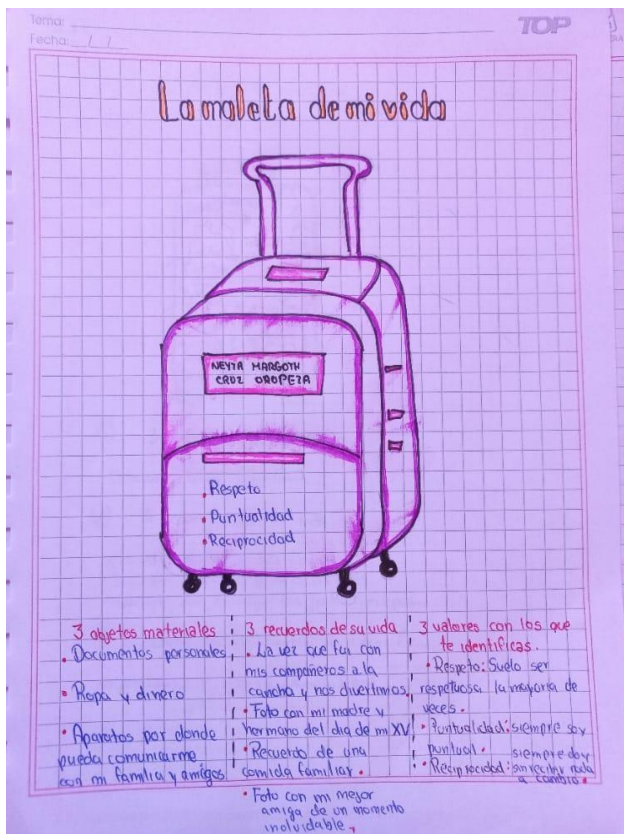 Tema:
TOP
Fecha: / /
La maleta de mi vida
NEYZA MARGOTH
CRUZ OROPEZA
• Respeto
• Puntualidad
• Reciprocidad
3 objetos materiales
• Documentos personales
• Ropa y dinero
• Aparatos por donde
pueda comunicarme
con mi familia y amigos
3 recuerdos de su vida
• La vez que fui con
mis compañeros a la
cancha y nos divertimos.
• Foto con mi madre y
hermano del dia de mi XV
• Recuerdo de una
comida familiar.
• Foto con mi mejor
amiga de un momento
inolvidable.
3 valores con los que
te identificas.
• Respeto: Suelo ser
respetuosa la mayoria de
veces.
• Puntualidad: siempre soy
puntual.
• Reciprocidad: siempre doy
sin recibir nada
a cambio.